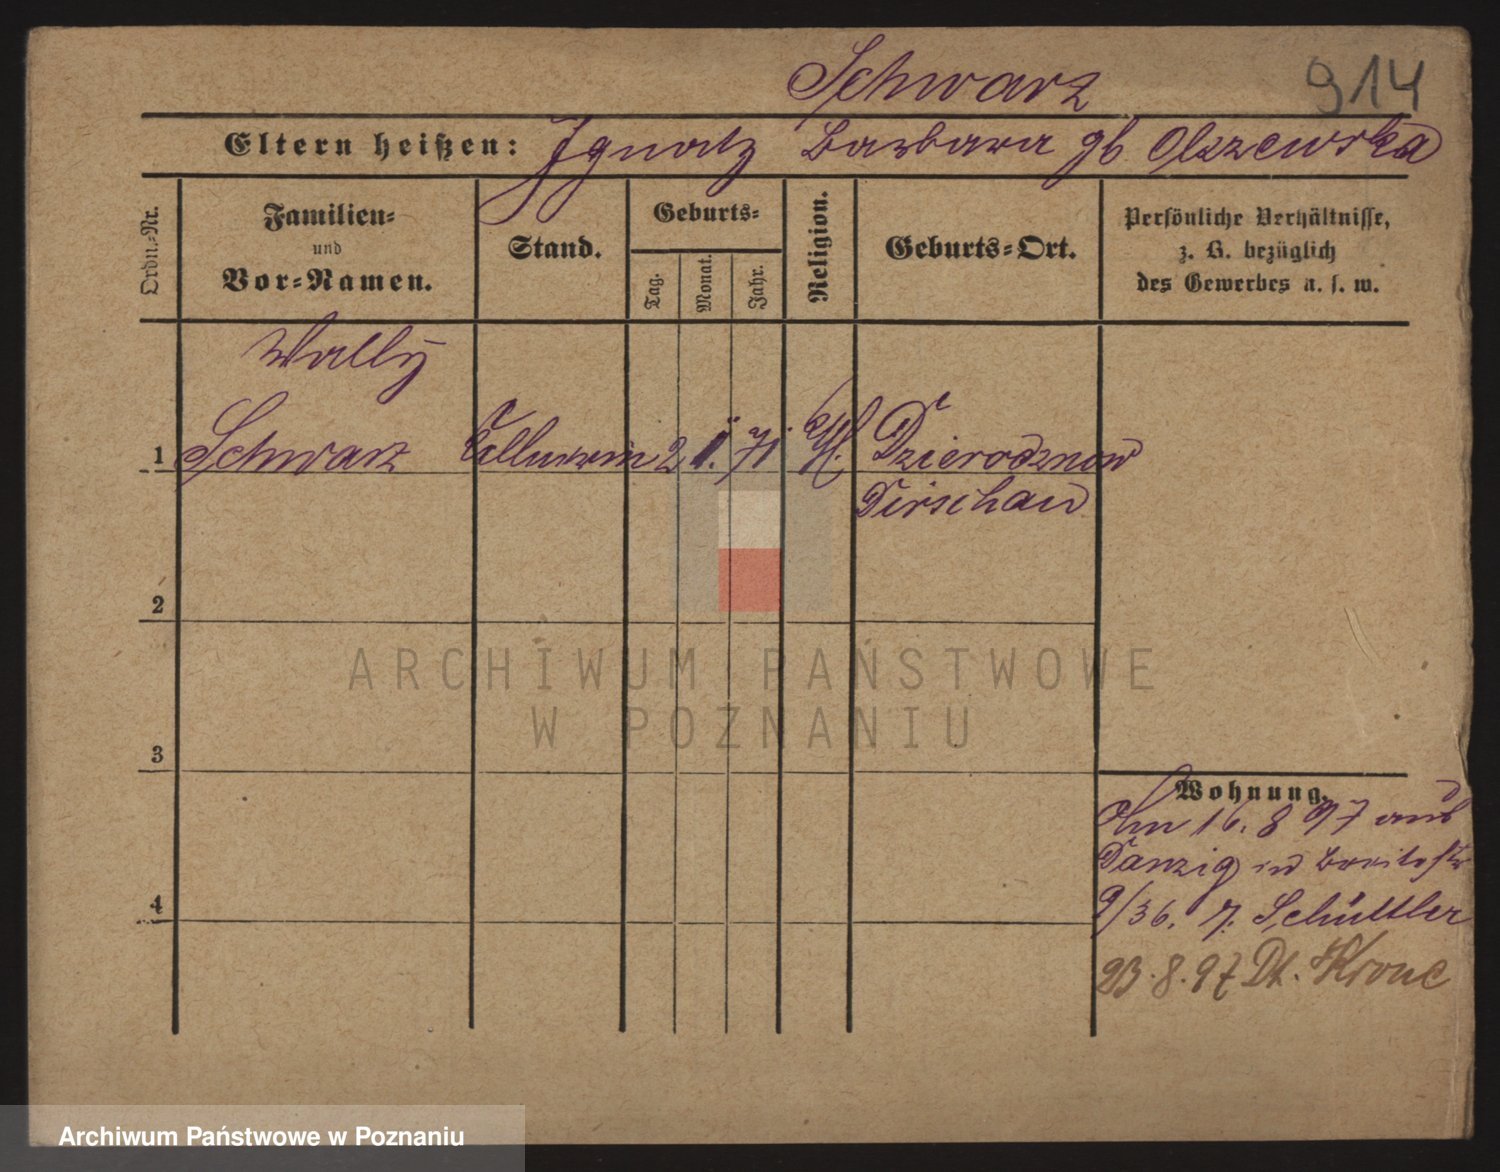 Schwarz
914
Eltern heißen: Ignatz Barbara gb Olszewska
Ordn.-Nr.
Familien-
und
Vor-Namen.
Stand.
Geburts-
Tag.
Monat.
Jahr.
Religion.
Geburts-Ort.
Persönliche Verhältnisse,
z. B. bezüglich
des Gewerbes u. s. w.
Wally
1 Schwarz Kellnerin 2 1. 71
Dirschau
2
3
4
Wohnung.
16. 8 97 aus
Danzig in Breitestr
9/36. Schüttler
23. 8. 97 Dt. Krone
ARCHIWUM PAŃSTWOWE
W POZNANIU
Archiwum Państwowe w Poznaniu